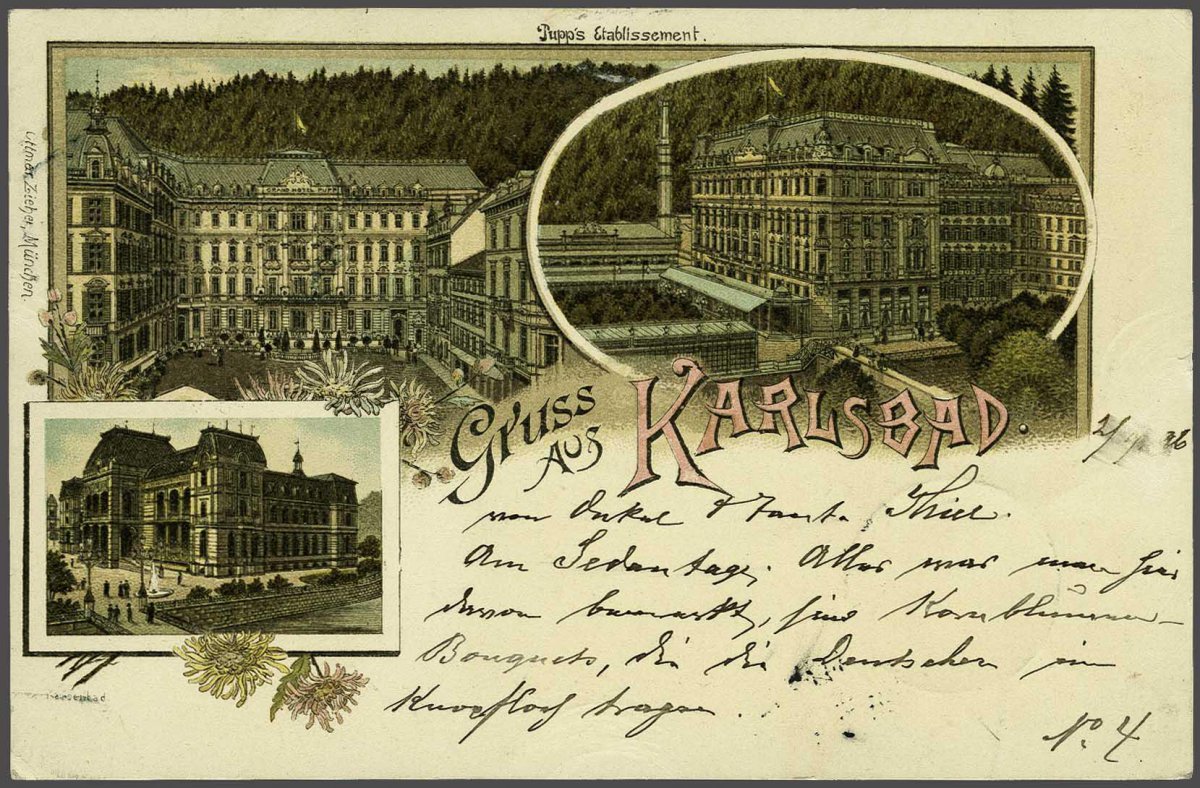 Pupp's Etablissement.
Ottmar Zieher, München.
GRAND HOTEL PUPP
Gruss
aus
KARLSBAD.
2/9 96
von Onkel & Tante Thiel.
Am Sedantage. Alles was man hier
davon bemerkt, sind Kornblumen-
Bouquets, die die Deutschen im
Knopfloch tragen.
No. 4
Kaiserbad